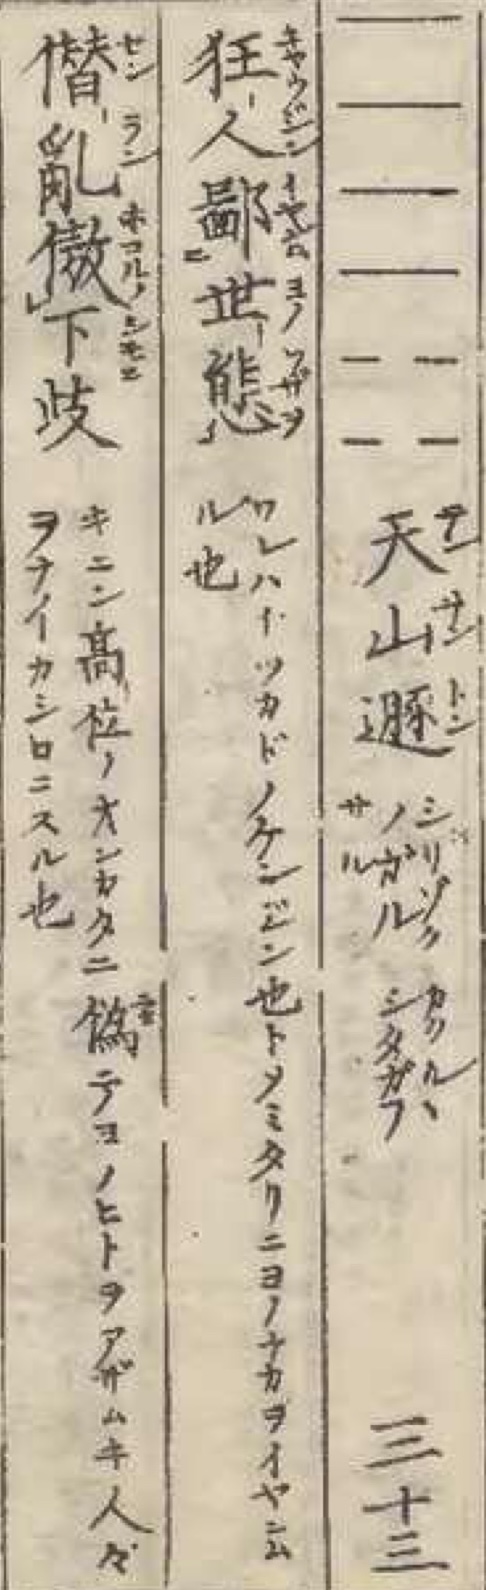 天山遯 シリゾク ノガルサル カクルヽ シタガフ 三十三
テンサントン
狂人鄙世態 ワレハイツカドノケンジン也トヲミタリニヨノナカヲイヤシム
ル也
キヤウジンイヤシムヨノワザヲ
僭亂傲下歧 キニン高位ノオンカタニ僞テヨノヒトヲアザムキ人々
ヲナイカシロニスル也
センランホコルノシモニ